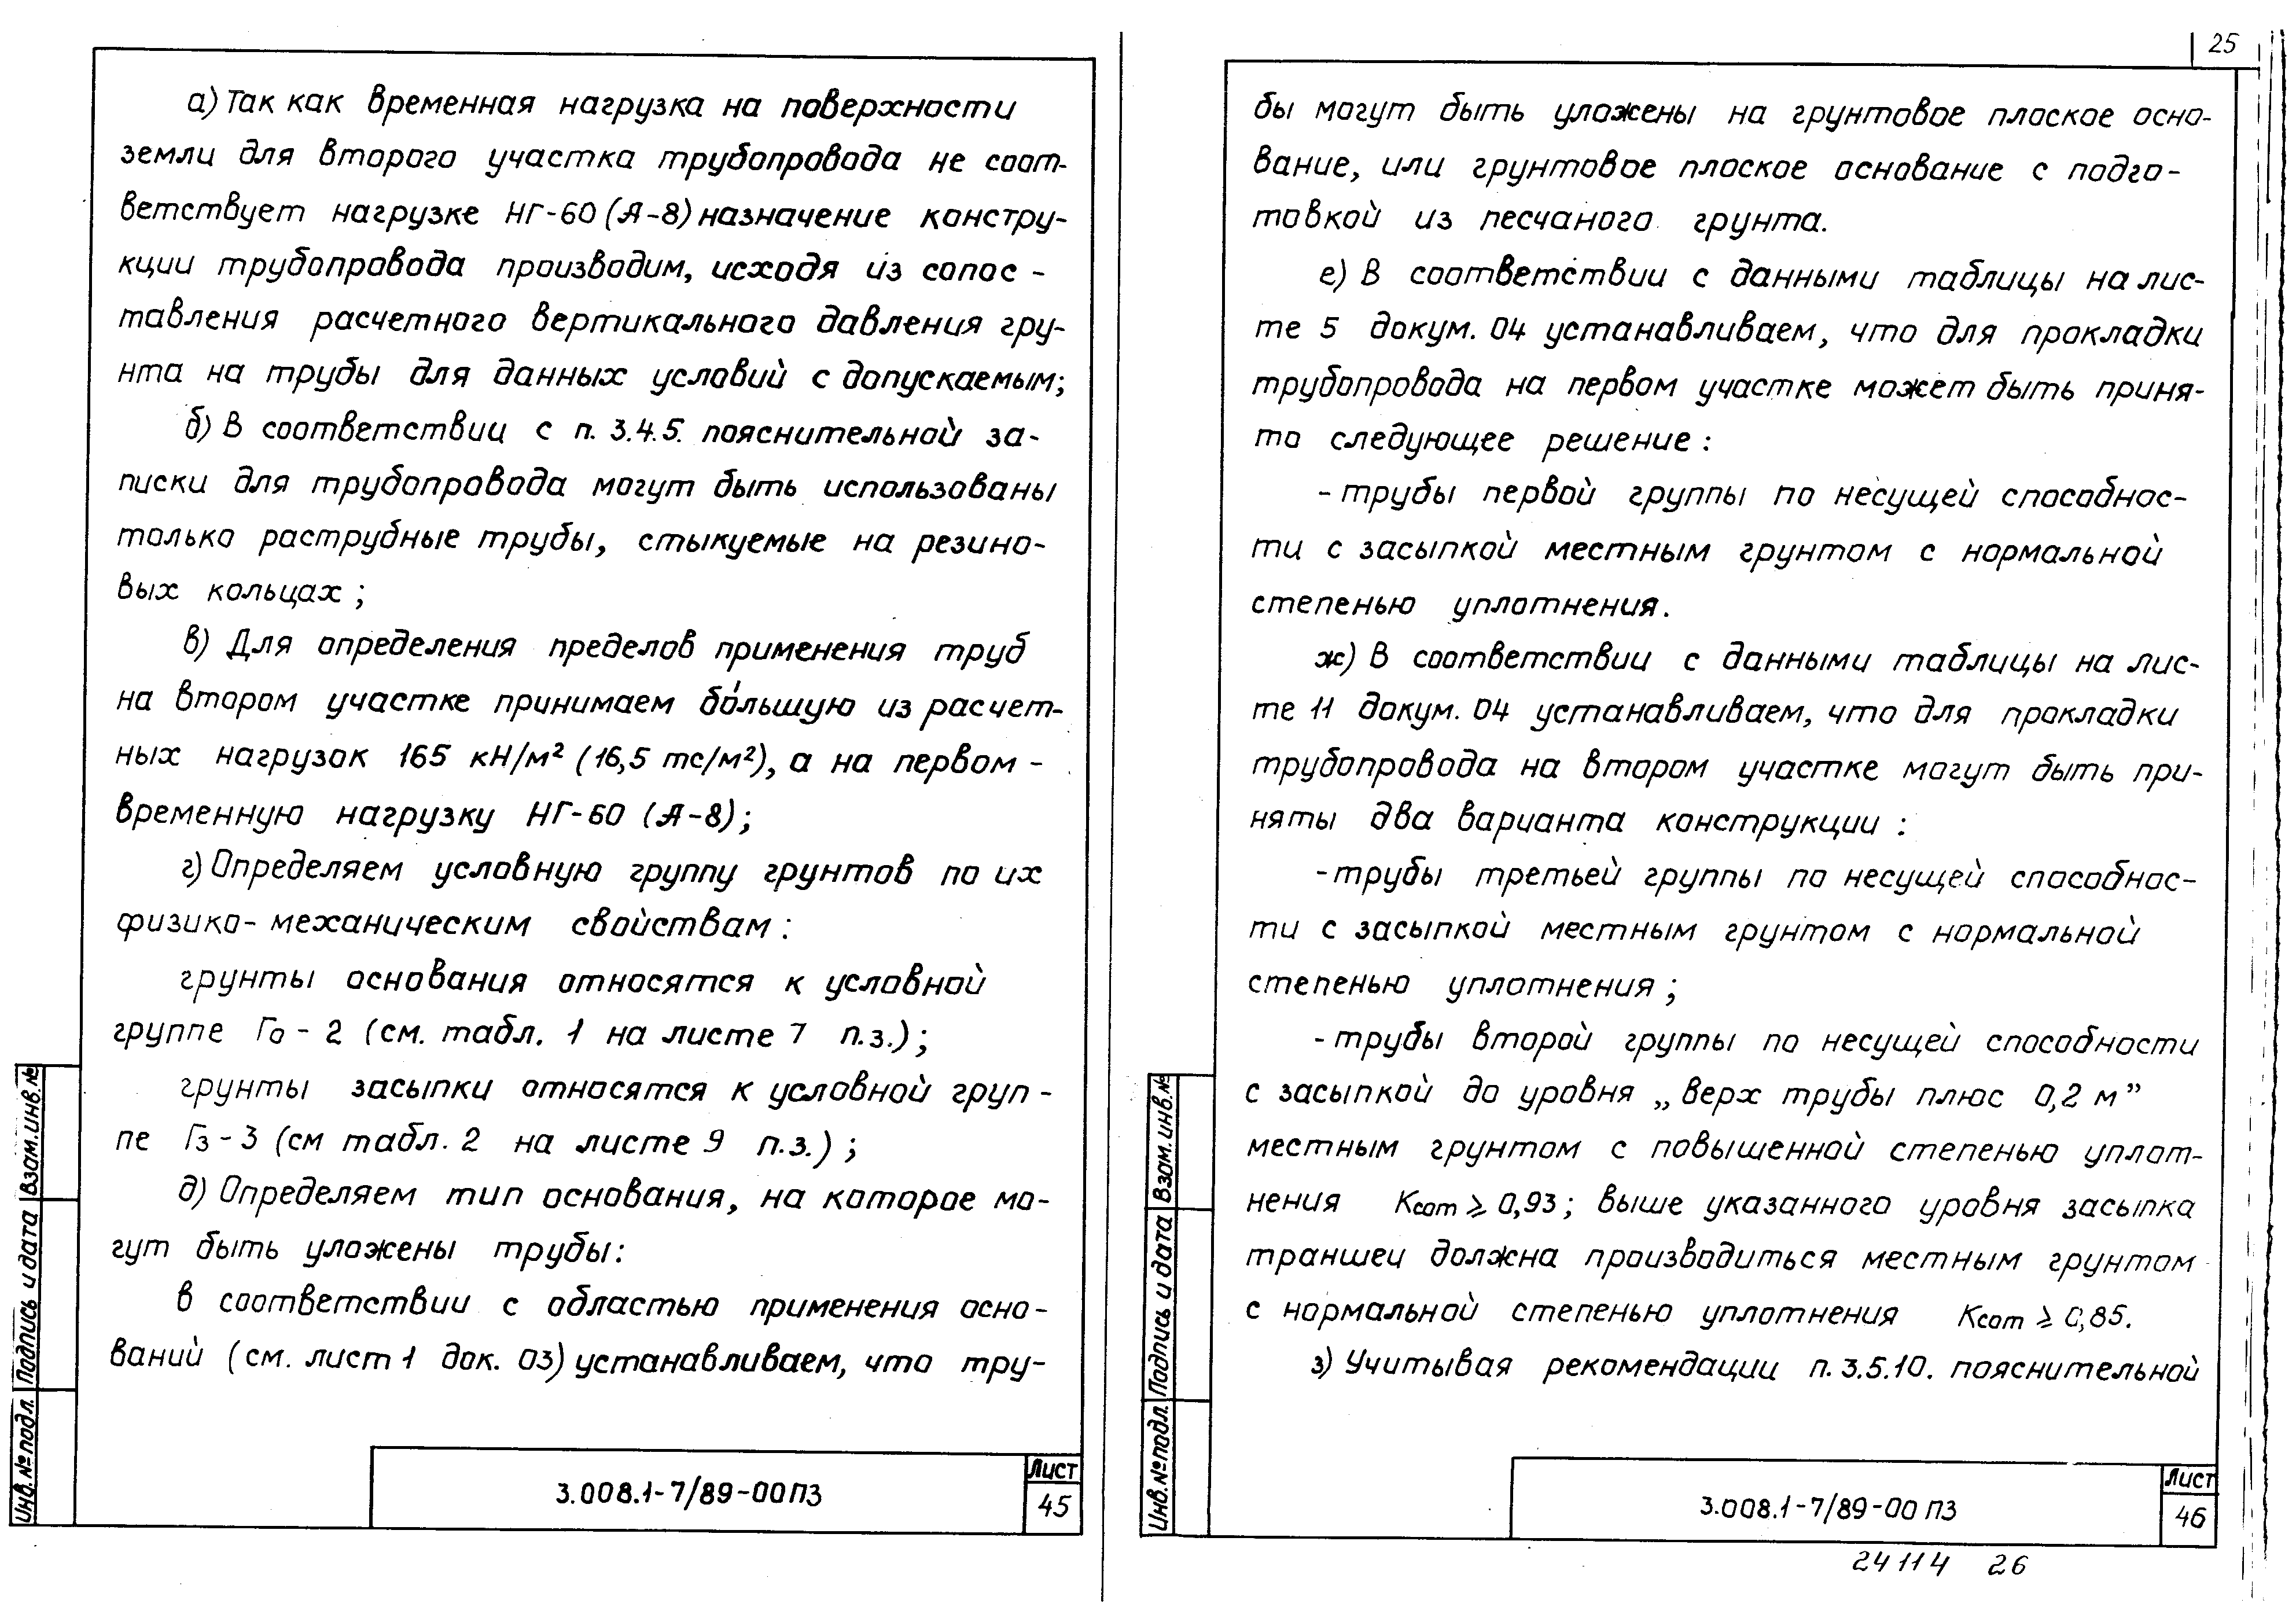 а) Так как временная нагрузка на поверхности
земли для второго участка трубопровода не соот-
ветствует нагрузке НГ-60 (А-8) назначение констру-
кции трубопровода производим, исходя из сопос-
тавления расчетного вертикального давления гру-
нта на трубы для данных условий с допускаемым;
б) В соответствии с п. 3.4.5. пояснительной за-
писки для трубопровода могут быть использованы
только раструбные трубы, стыкуемые на резино-
вых кольцах;
в) Для определения пределов применения труб
на втором участке принимаем бо́льшую из расчет-
ных нагрузок 165 кН/м² (16,5 тс/м²), а на первом -
временную нагрузку НГ-60 (А-8);
г) Определяем условную группу грунтов по их
физико-механическим свойствам:
грунты основания относятся к условной
группе Го-2 (см. табл. 1 на листе 7 п.з.);
грунты засыпки относятся к условной груп-
пе Гз-3 (см табл. 2 на листе 9 п.з.);
д) Определяем тип основания, на которое мо-
гут быть уложены трубы:
в соответствии с областью применения осно-
ваний (см. лист 1 док. 03) устанавливаем, что тру-
Инв. № подл. Подпись и дата Взам. инв. №
3.008.1-7/89-00ПЗ
Лист
45
25
бы могут быть уложены на грунтовое плоское осно-
вание, или грунтовое плоское основание с подго-
товкой из песчаного грунта.
е) В соответствии с данными таблицы на лис-
те 5 докум. 04 устанавливаем, что для прокладки
трубопровода на первом участке может быть приня-
то следующее решение:
- трубы первой группы по несущей способнос-
ти с засыпкой местным грунтом с нормальной
степенью уплотнения.
ж) В соответствии с данными таблицы на лис-
те 11 докум. 04 устанавливаем, что для прокладки
трубопровода на втором участке могут быть при-
няты два варианта конструкции:
- трубы третьей группы по несущей способнос-
ти с засыпкой местным грунтом с нормальной
степенью уплотнения;
- трубы второй группы по несущей способности
с засыпкой до уровня „верх трубы плюс 0,2 м”
местным грунтом с повышенной степенью уплот-
нения Ксот ⩾ 0,93; выше указанного уровня засыпка
траншеи должна производиться местным грунтом
с нормальной степенью уплотнения Ксот ⩾ 0,85.
з) Учитывая рекомендации п. 3.5.10. пояснительной
Инв. № подл. Подпись и дата Взам. инв. №
3.008.1-7/89-00 ПЗ
Лист
46
24114 26